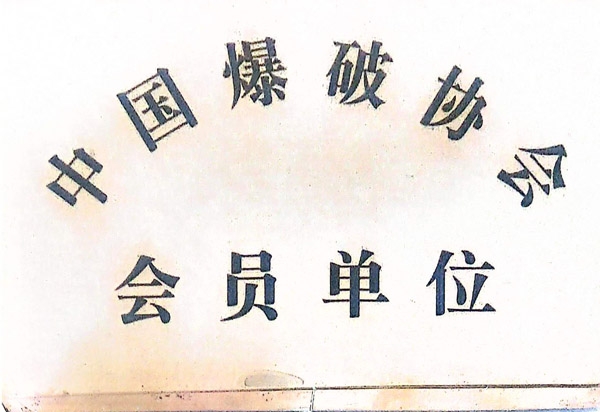 中国爆破协会
会员单位